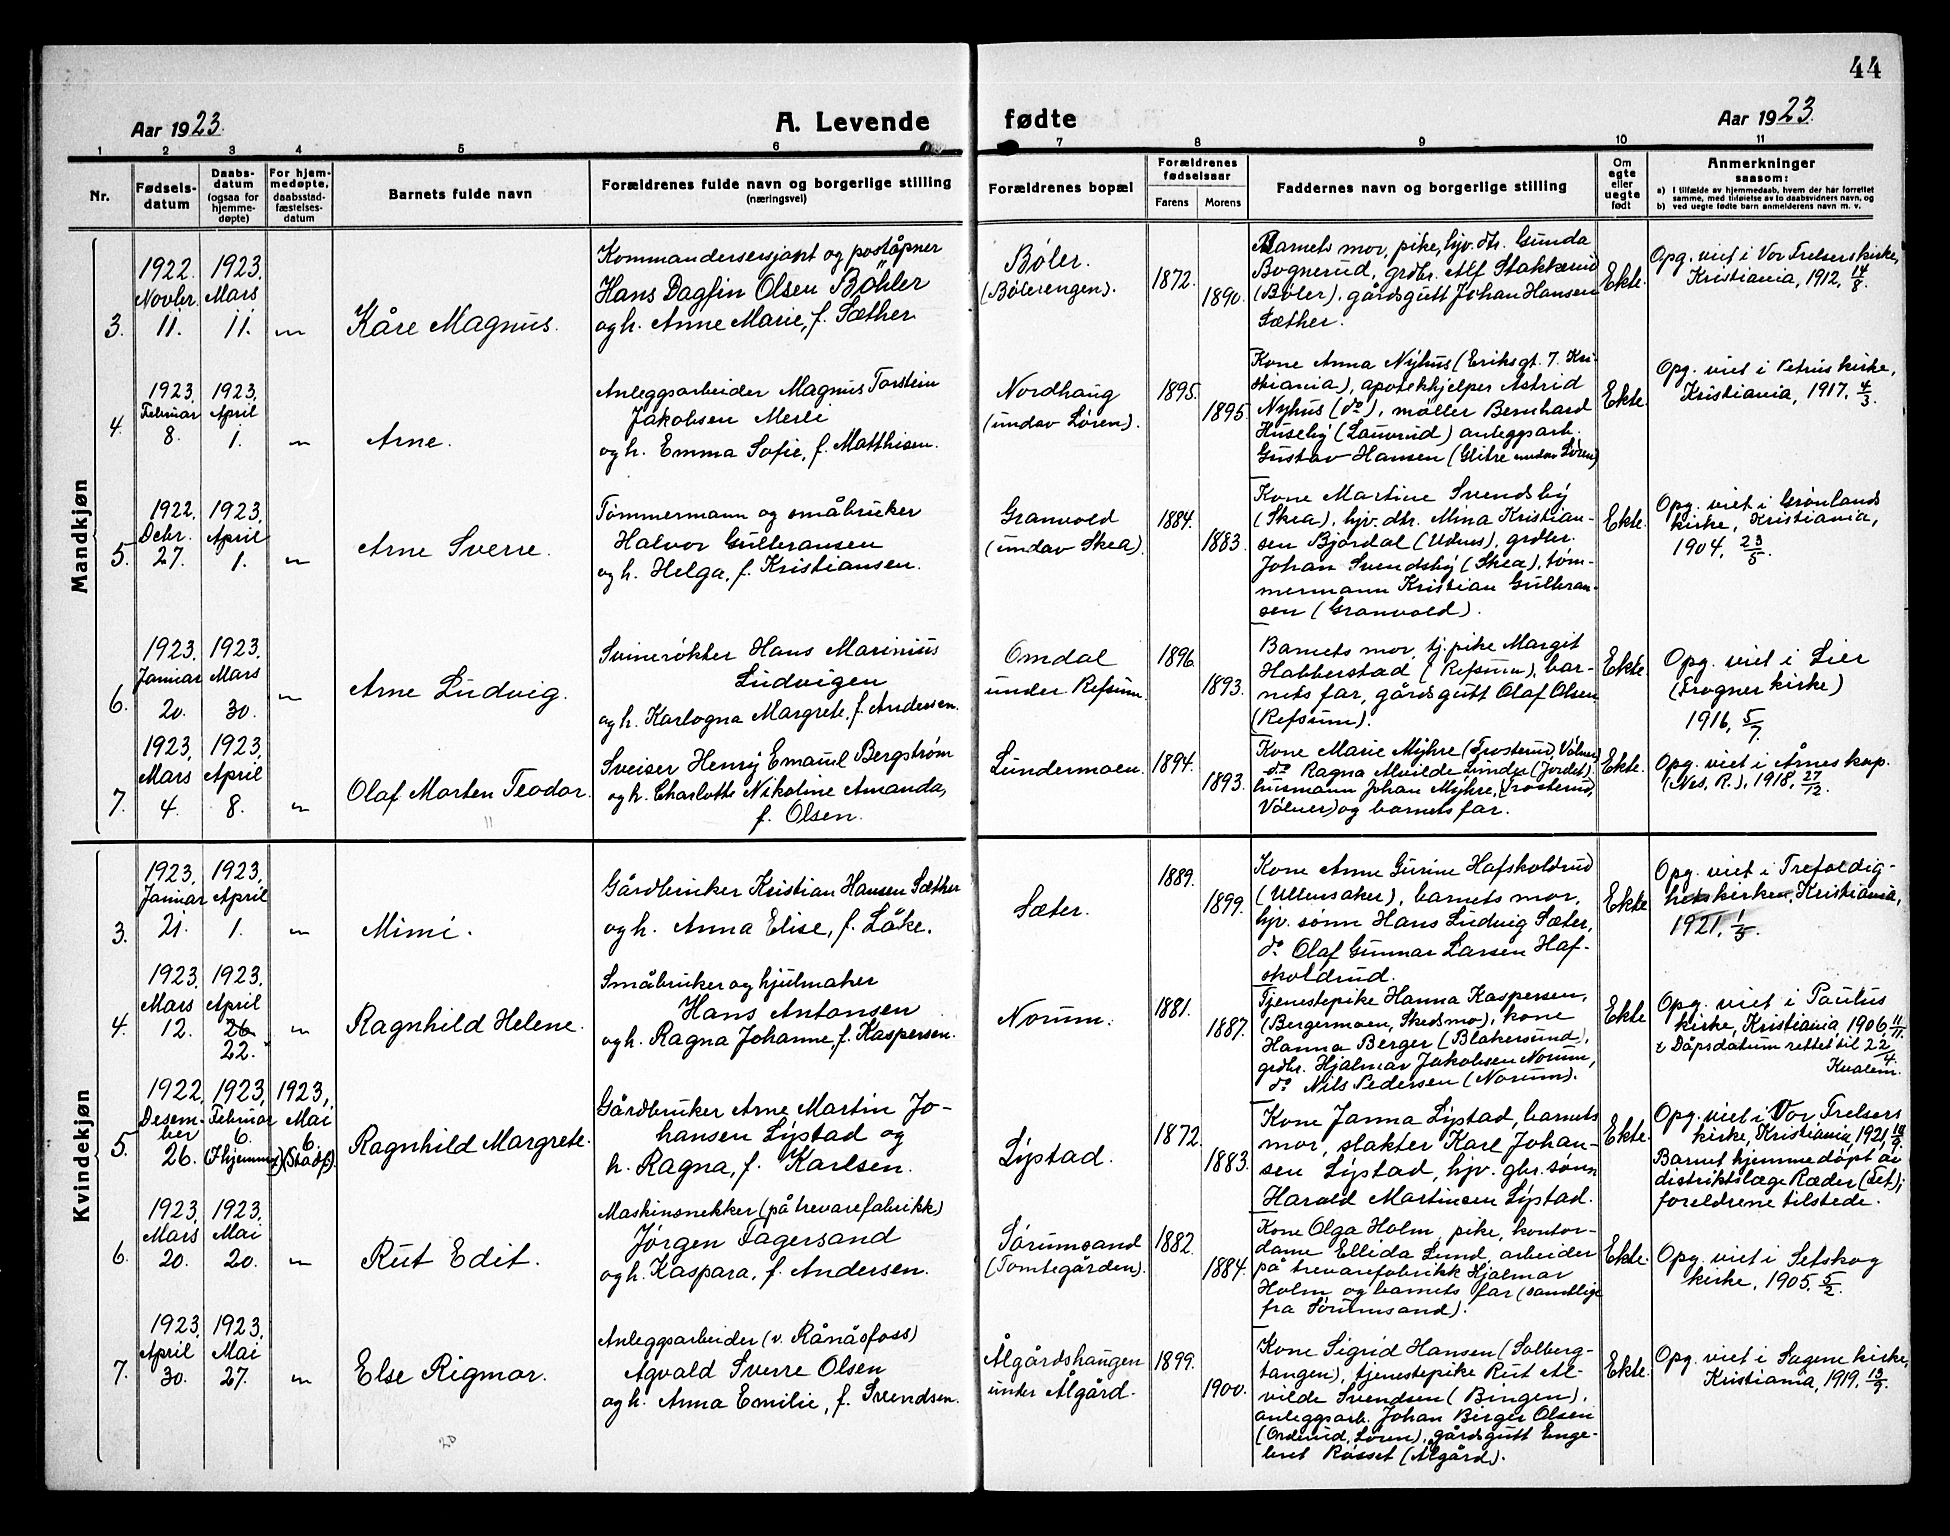 44
Aar 1923.
A. Levende fødte
Aar 1923.
1 2 3 4 5 6 7 8 9 10 11
Nr.
Fødsels-
datum
Daabs-
datum
(ogsaa for
hjemme-
døpte)
For hjem-
medøpte,
daabsstad-
fæstelses-
datum
Barnets fulde navn
Forældrenes fulde navn og borgerlige stilling
(næringsvei)
Forældrenes bopæl
Forældrenes
fødselsaar
Farens
Morens
Faddernes navn og borgerlige stilling
Om
egte
eller
uegte
født
Anmerkninger
saasom:
a) I tilfælde av hjemmedaab, hvem der har forrettet
samme, med tilføielse av to daabsvidners navn, og
b) ved uegte fødte barn anmelderens navn m. v.
Mandkjøn
3.
1922.
Novbr.
11.
1923.
Mars
11.
"
Kåre Magnus.
Kommandersersjant og poståpner
Hans Dagfin Olsen Böhler
og h. Anne Marie, f. Sæther
Bøler.
(Bølerengen).
1872.
1890.
Barnets mor, pike, hjv. dtr. Gunda
Bognerud, grdbr. Alf Stakkerud
(Bøler), gårdsgutt Johan Hansen
Sæther.
Ekte.
Opg. viet i Vor Frelsers kirke,
Kristiania, 1912, 14/8.
4.
1923.
Februar
8.
1923.
April
1.
"
Arne.
Anleggsarbeider Magnus Torstein
Jakobsen Merli
og h. Emma Sofie, f. Matthisen.
Nordhaug
(undav Løren).
1895.
1895.
Kone Anna Nyhus (Eriksgt. 7. Kri-
stiania), apotekhjelper Astrid
Nyhus (do), møller Bernhard
Huseby (Lauvrud) anleggsarb.
Gustav Hansen (Glitre undav Løren)
Ekte.
Opg. viet i Petrus kirke,
Kristiania, 1917, 4/3.
5.
1922.
Debr.
27.
1923.
April
1.
"
Arne Sverre.
Tømmermann og småbruker
Halvor Gulbransen
og h. Helga, f. Kristiansen.
Granvold
(undav Skea).
1884.
1883.
Kone Martine Svendsby
(Skea), hjv. dtr. Mina Kristian-
sen Bjørdal (Udnes), grdbr.
Johan Svendsby (Skea), tøm-
mermann Kristian Gulbran-
sen (Granvold).
Ekte.
Opg. viet i Grønlands
kirke, Kristiania,
1904, 23/5.
6.
1923.
Januar
20.
1923.
Mars
30.
"
Arne Ludvig.
Svinerøkter Hans Marinius
Ludvigen
og h. Karlogna Margrete, f. Andersen.
Omdal
under Refsum.
1896.
1893.
Barnets mor, tj. pike Margit
Halberstad (Refsum), bar-
nets far, gårdsgutt Olaf Olsen
(Refsum).
Ekte.
Opg. viet i Lier
(Frogner kirke)
1916, 5/7.
7.
1923.
Mars
4.
1923.
April
8.
"
Olaf Morten Teodor.
Sveiser Henry Emanuel Bergstrøm
og h. Charlotte Nikoline Amanda,
f. Olsen.
Lundermoen.
1894.
1893.
Kone Marie Myhre (Trosterud, Vølner)
do Ragna Alvilde Lunder (Jordet).
husmann Johan Myhre, (Trosterud,
Vølner) og barnets far.
Ekte.
Opg. viet i Årnes kap.
(Nes, R.), 1918, 27/12.
Kvindekjøn
3.
1923.
Januar
21.
1923.
April
1.
"
Mimi.
Gårdbruker Kristian Hansen Sæther
og h. Anna Elise, f. Låke.
Sæter.
1889.
1899.
Kone Anne Gurine Hafskoldrud
(Ullensaker), barnets mor,
hjv. sønn Hans Ludvig Sæter,
do Olaf Gunnar Larsen Haf-
skoldrud.
Ekte
Opg. viet i Trefoldig-
hets kirken, Kristiania,
1921, 1/5.
4.
1923.
Mars
12.
1923.
April
26
22.
"
Ragnhild Helene.
Småbruker og hjulmaker
Hans Antonsen
og h. Ragna Johanne, f. Kaspersen.
Norum.
1881.
1887.
Tjenestepike Hanna Kaspersen,
(Bergermoen, Skedsmo), kone
Hanna Berger (Blakersund),
grdbr. Hjalmar Jakobsen Norum,
do Nils Pedersen (Norum).
Ekte
Opg. viet i Paulus
kirke, Kristiania, 1906, 11/11.
Dåpsdatum rettet til 22/4.
Kvalem.
5.
1922,
Desem-
ber
26.
1923,
Februar
6.
(Hjemme)
1923,
Mai
6.
(Stadf.)
Ragnhild Margrete.
Gårdbruker Arne Martin Jo-
hansen Lystad og
h. Ragna, f. Karlsen.
Lystad.
1872.
1883.
Kone Janna Lystad, barnets
mor, slakter Karl Johan-
sen Lystad, hjv. gbr. sønn
Harald Martinsen Lystad.
Ekte.
Opg. viet i Vor Frelsers
kirke, Kristiania, 1921,
Barnet hjemmedøpt av
distriktslæge Ræder (Fet);
foreldrene tilstede.
6.
1923.
Mars
20.
1923.
Mai
20.
"
Rut Edit.
Maskinsnekker (på trevarefabrikk)
Jørgen Fagersand
og h. Kaspara, f. Andersen.
Sørumsand
(Tomtegården).
1882.
1884.
Kone Olga Holm, pike, kontor-
dame Ellida Lund, arbeider
på trevarefabrikk Hjalmar
Holm og barnets far (samtlige
fra Sørumsand).
Ekte.
Opg. viet i Setskog
kirke, 1905, 5/2.
7.
1923.
April
30.
1923.
Mai
27.
"
Else Rigmor.
Anleggsarbeider (v. Rånåsfoss)
Agvald Sverre Olsen
og h. Anna Emilie, f. Svendsen.
Ålgårdshaugen
under Ålgård.
1899.
1900.
Kone Sigrid Hansen (Solberg-
tangen), tjenestepike Rut Al-
vilde Svendsen (Bingen),
anleggsarb. Johan Birger Olsen
(Orderud, Løren), gårdsgutt Enge-
bret Røsset (Ålgård).
Ekte.
Opg. viet i Sagene kirke,
Kristiania, 1919, 13/9.
20